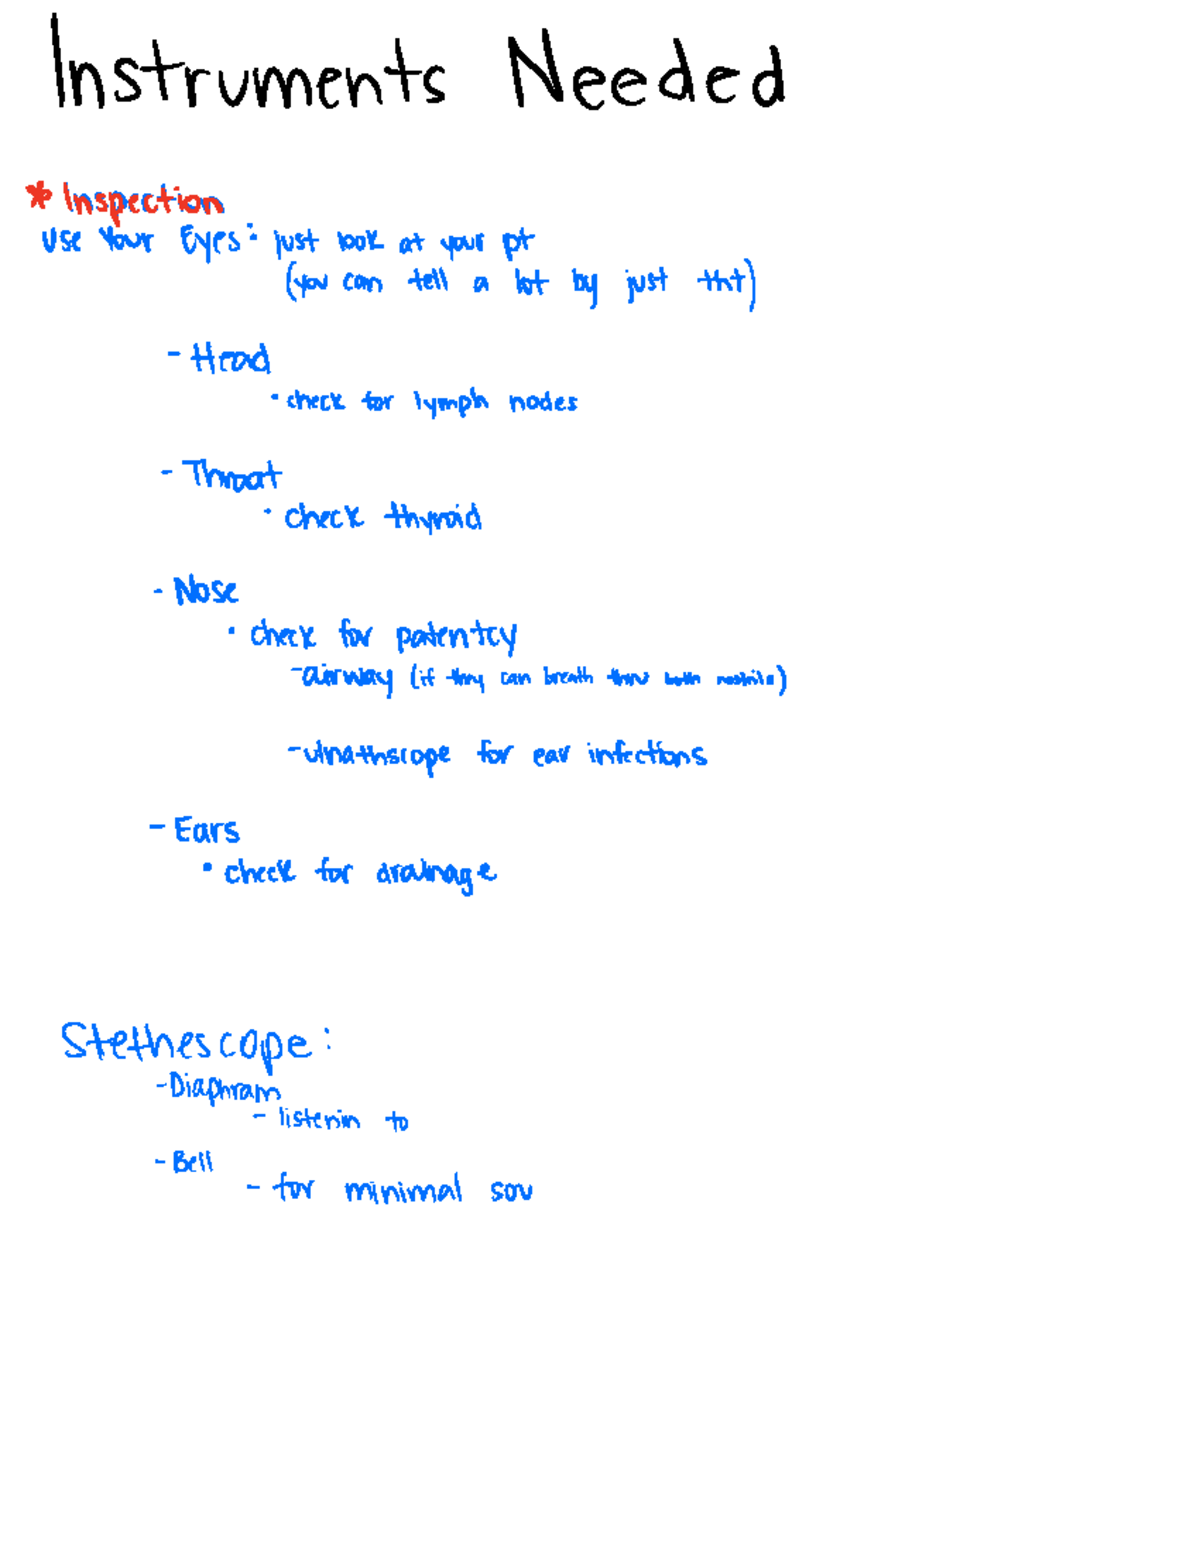 Instruments Needed
* Inspection
Use Your Eyes: just look at your pt
(you can tell a lot by just tht)
- Head
• check for lymph nodes
- Throat
• check thyroid
- Nose
• check for patentcy
- airway (if they can breath thru both nostrils)
- ulnathscope for ear infections
- Ears
• check for drainage
Stethescope:
- Diaphram
- listenin to
- Bell
- for minimal sou